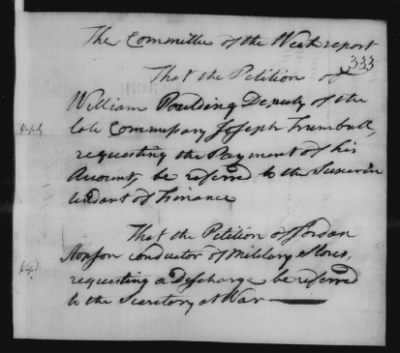 The Committee of the Week report
333
That the Petition of
William Poulding Deputy of the
late Commissary Joseph Trumbull,
requesting the Payment of his
Account, be referred to the Superin
tendant of Finance
That the Petition of Jordan
conductor of Military Stores,
requesting a Discharge be referred
to the Secretary at War